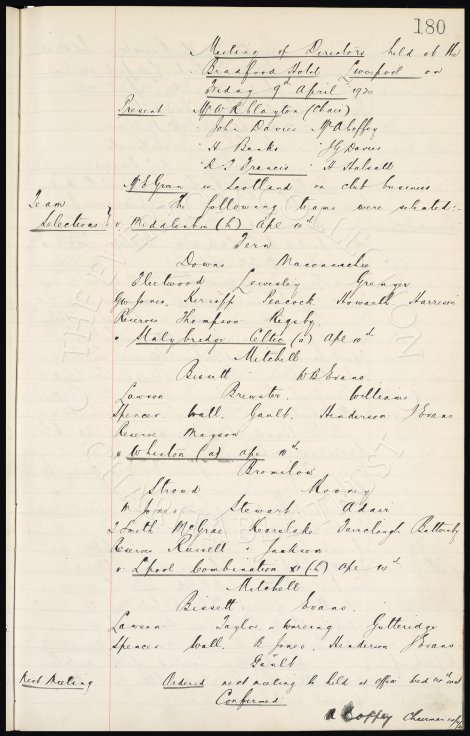 180
Meeting of Directors held at the
Bradford Hotel Liverpool on
Friday 9th April 1920
Present Mr W R Clayton (Chair)
John Davies Mr A Coffey
" H Banks " J G Davies
" R T Francis " H Halsall
Mr E Green in Scotland on club business
Team
Selections
The following teams were selected:-
v. Middlesbro (h) Apl 10th
Fern
Downs Maconnachie
Fleetwood Lewesley Grenyer
Geo Jones. Kirsopp Peacock Howarth Harrison
Reserves Thompson Rigsby.
" Stalybridge Celtic (a) Apl 10th
Mitchell
Bissett W B Evans
Lawson Brewster. Williams
Spencer Wall. Gault. Henderson J Evans
Reserve Mayson
v Whiston (a) Apl 10th
Bromilow
Stroud Mooney
W Jones Stewart. Adair
Smith McGrae. Kearslake. Fairclough Battersby
Reserves Russell & Jackson
v. L'pool Combination XI (h) Apl 14th
Mitchell
Bissett Evans.
Lawson Taylor or Wareing Gutteridge
Spencer Wall. A Jones. Henderson J Evans
Gault
Next Meeting
Ordered next meeting be held at office Wed 14th inst
Confirmed
A Coffey Chairman